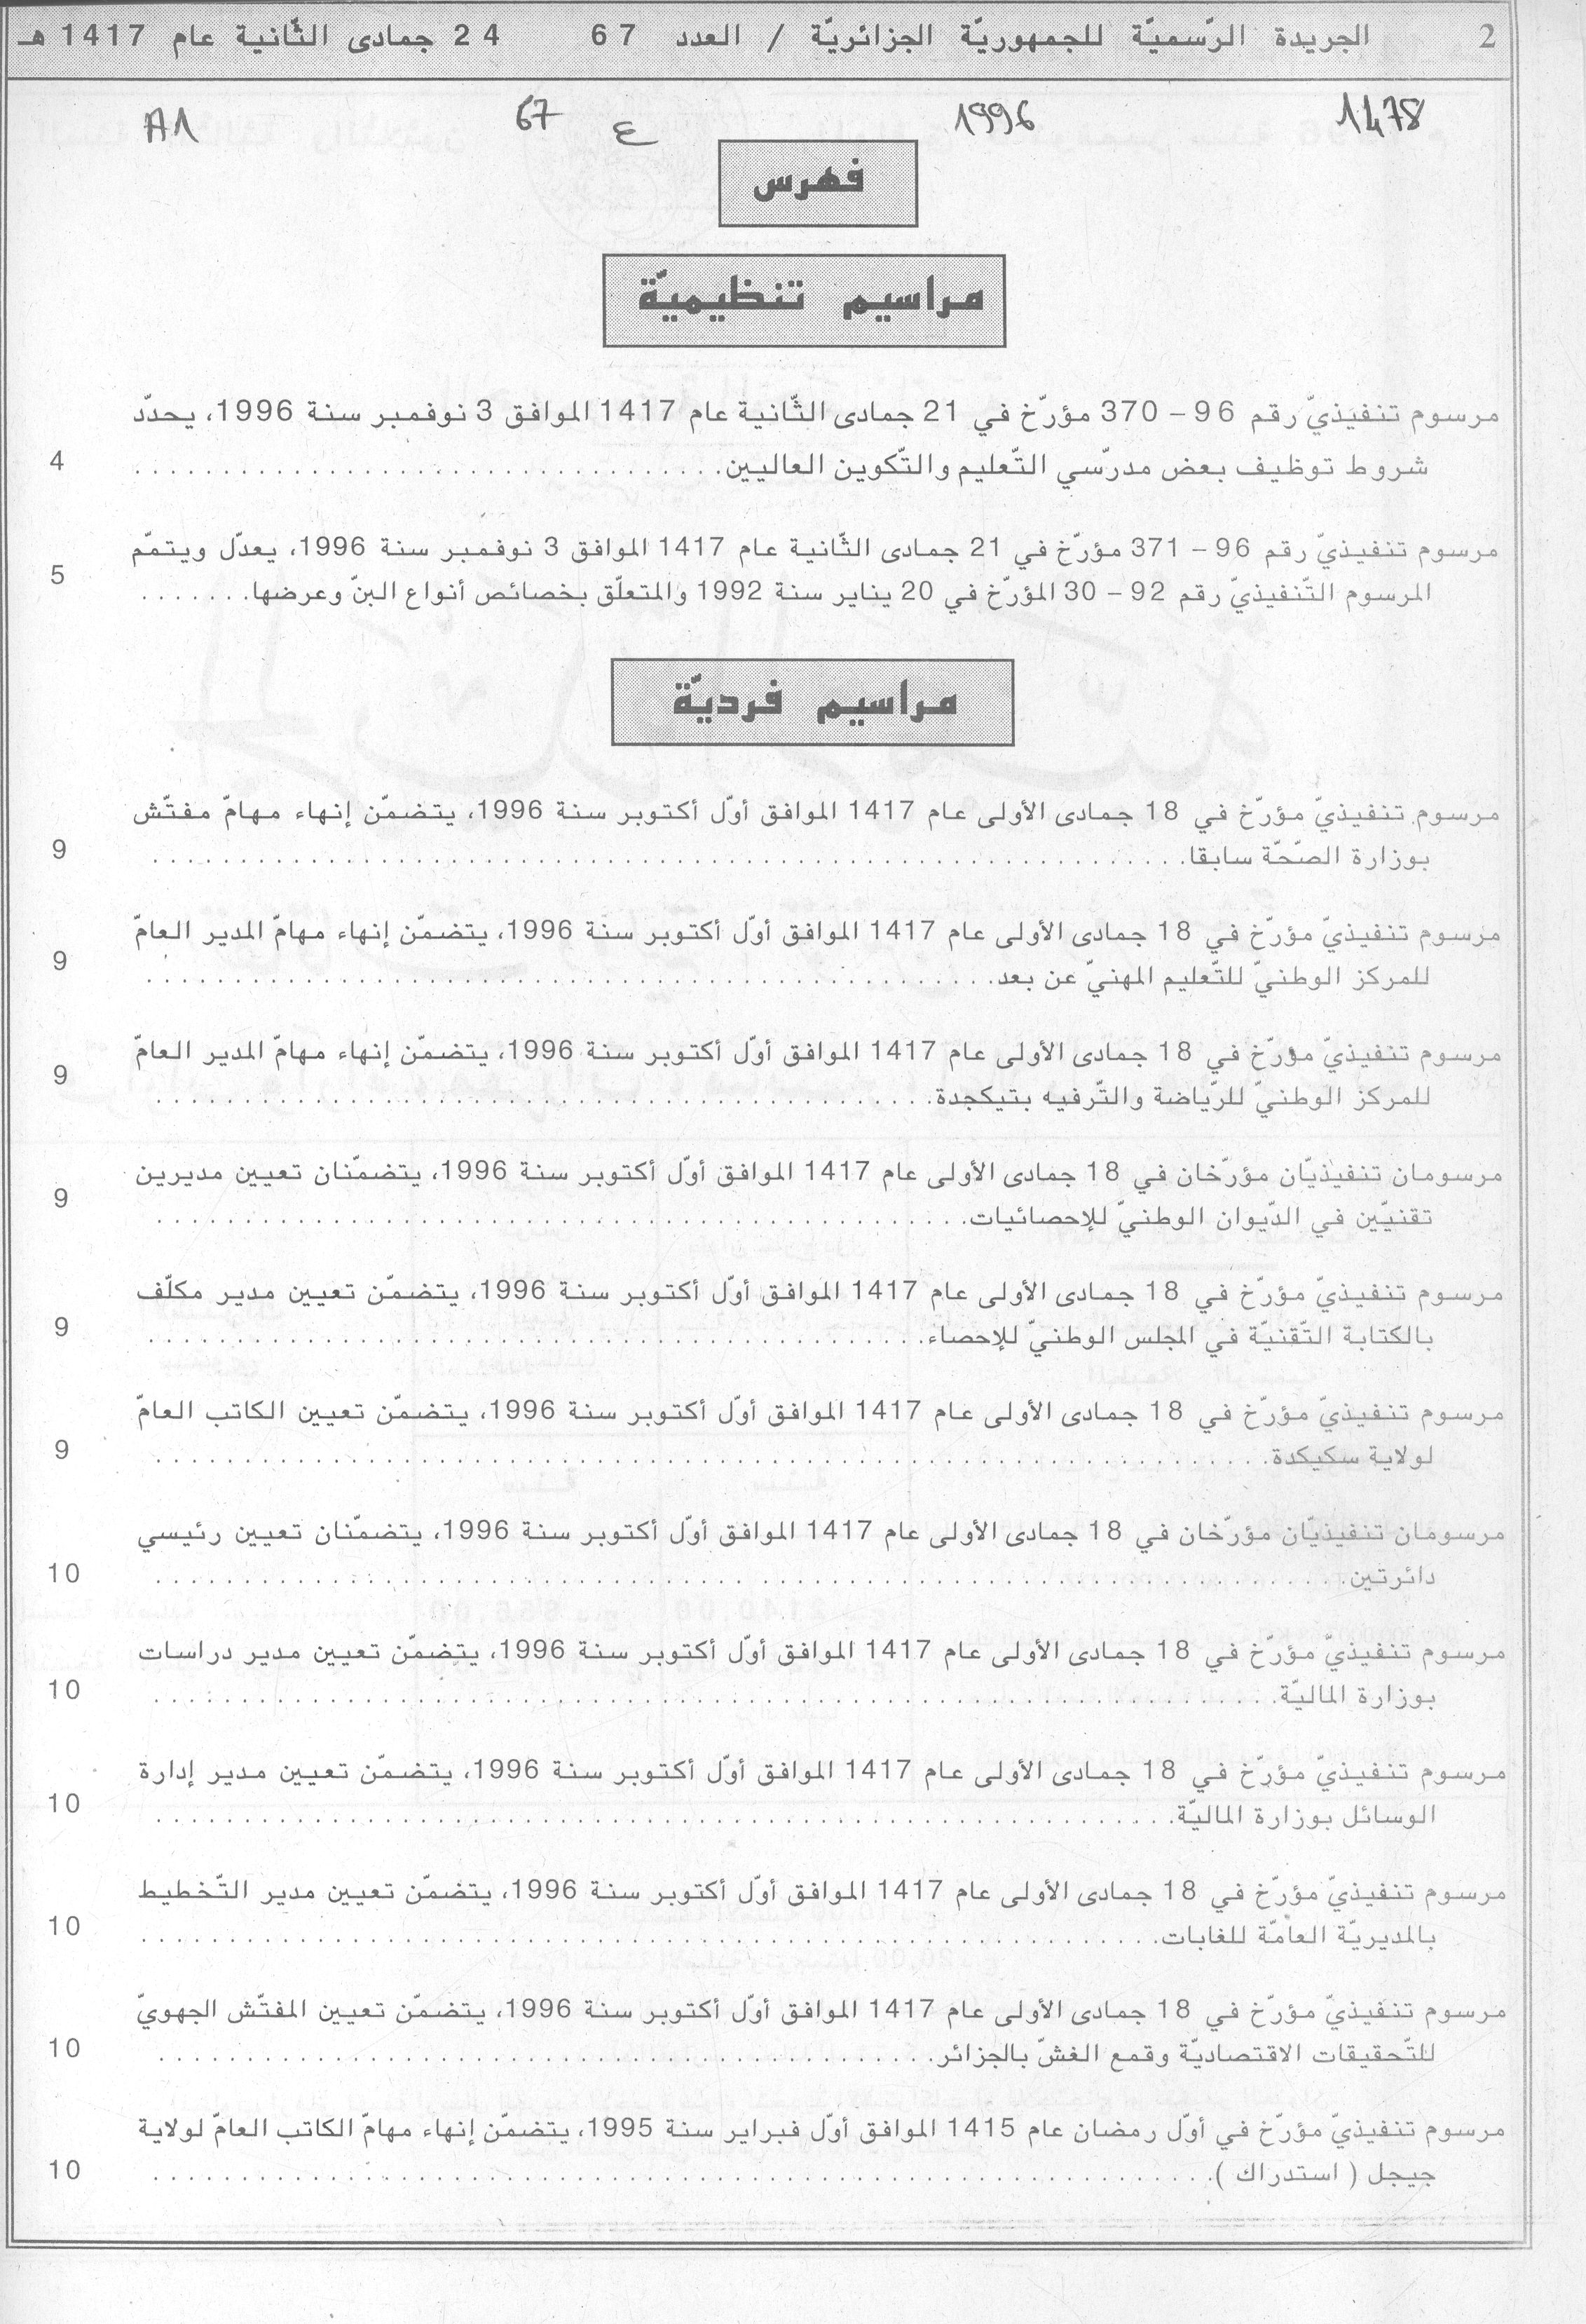 2 الجريدة الرّسميّة للجمهوريّة الجزائريّة / العدد 67 24 جمادى الثّانية عام 1417 هـ
1478 1996 ع 67 A1
فهرس
مراسيم تنظيميّة
مرسوم تنفيذيّ رقم 96 – 370 مؤرّخ في 21 جمادى الثّانية عام 1417 الموافق 3 نوفمبر سنة 1996، يحدّد
شروط توظيف بعض مدرّسي التّعليم والتّكوين العاليين. . . . . . . . . . . . . . . . . . . . 4
مرسوم تنفيذيّ رقم 96 – 371 مؤرّخ في 21 جمادى الثّانية عام 1417 الموافق 3 نوفمبر سنة 1996، يعدّل ويتمّم
المرسوم التّنفيذيّ رقم 92 – 30 المؤرّخ في 20 يناير سنة 1992 والمتعلّق بخصائص أنواع البنّ وعرضها. . . . . . . 5
مراسيم فرديّة
مرسوم تنفيذيّ مؤرّخ في 18 جمادى الأولى عام 1417 الموافق أوّل أكتوبر سنة 1996، يتضمّن إنهاء مهامّ مفتّش
بوزارة الصّحّة سابقا. . . . . . . . . . . . . . . . . . . . 9
مرسوم تنفيذيّ مؤرّخ في 18 جمادى الأولى عام 1417 الموافق أوّل أكتوبر سنة 1996، يتضمّن إنهاء مهامّ المدير العامّ
للمركز الوطنيّ للتّعليم المهنيّ عن بعد. . . . . . . . . . . . . . . . . . . . 9
مرسوم تنفيذيّ مؤرّخ في 18 جمادى الأولى عام 1417 الموافق أوّل أكتوبر سنة 1996، يتضمّن إنهاء مهامّ المدير العامّ
للمركز الوطنيّ للرّياضة والتّرفيه بتيكجدة. . . . . . . . . . . . . . . . . . . . 9
مرسومان تنفيذيّان مؤرّخان في 18 جمادى الأولى عام 1417 الموافق أوّل أكتوبر سنة 1996، يتضمّنان تعيين مديرين
تقنيّين في الدّيوان الوطنيّ للإحصائيات. . . . . . . . . . . . . . . . . . . . 9
مرسوم تنفيذيّ مؤرّخ في 18 جمادى الأولى عام 1417 الموافق أوّل أكتوبر سنة 1996، يتضمّن تعيين مدير مكلّف
بالكتابة التّقنيّة في المجلس الوطنيّ للإحصاء. . . . . . . . . . . . . . . . . . . . 9
مرسوم تنفيذيّ مؤرّخ في 18 جمادى الأولى عام 1417 الموافق أوّل أكتوبر سنة 1996، يتضمّن تعيين الكاتب العامّ
لولاية سكيكدة. . . . . . . . . . . . . . . . . . . . 9
مرسومان تنفيذيّان مؤرّخان في 18 جمادى الأولى عام 1417 الموافق أوّل أكتوبر سنة 1996، يتضمّنان تعيين رئيسي
دائرتين. . . . . . . . . . . . . . . . . . . . 10
مرسوم تنفيذيّ مؤرّخ في 18 جمادى الأولى عام 1417 الموافق أوّل أكتوبر سنة 1996، يتضمّن تعيين مدير دراسات
بوزارة الماليّة. . . . . . . . . . . . . . . . . . . . 10
مرسوم تنفيذيّ مؤرّخ في 18 جمادى الأولى عام 1417 الموافق أوّل أكتوبر سنة 1996، يتضمّن تعيين مدير إدارة
الوسائل بوزارة الماليّة. . . . . . . . . . . . . . . . . . . . 10
مرسوم تنفيذيّ مؤرّخ في 18 جمادى الأولى عام 1417 الموافق أوّل أكتوبر سنة 1996، يتضمّن تعيين مدير التّخطيط
بالمديريّة العامّة للغابات. . . . . . . . . . . . . . . . . . . . 10
مرسوم تنفيذيّ مؤرّخ في 18 جمادى الأولى عام 1417 الموافق أوّل أكتوبر سنة 1996، يتضمّن تعيين المفتّش الجهويّ
للتّحقيقات الاقتصاديّة وقمع الغشّ بالجزائر. . . . . . . . . . . . . . . . . . . . 10
مرسوم تنفيذيّ مؤرّخ في أوّل رمضان عام 1415 الموافق أوّل فبراير سنة 1995، يتضمّن إنهاء مهامّ الكاتب العامّ لولاية
جيجل ( استدراك ). . . . . . . . . . . . . . . . . . . . 10